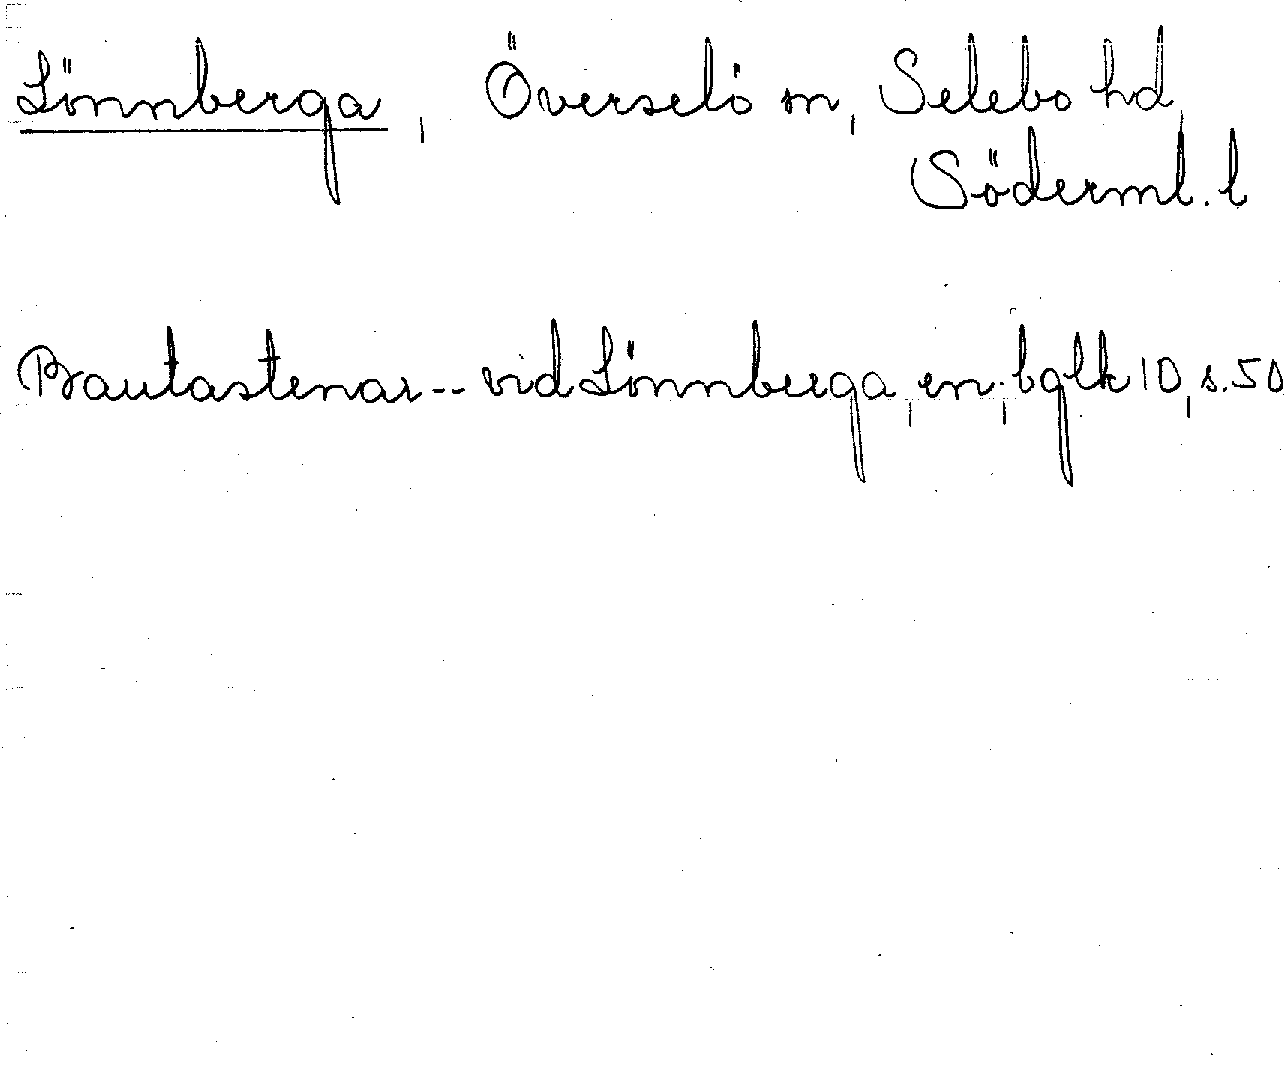 Lönnberga, Överselö sn, Selebo hd,
Söderml. l
Bautastenar -- vid Lönnberga, en; bglk 10, s. 50